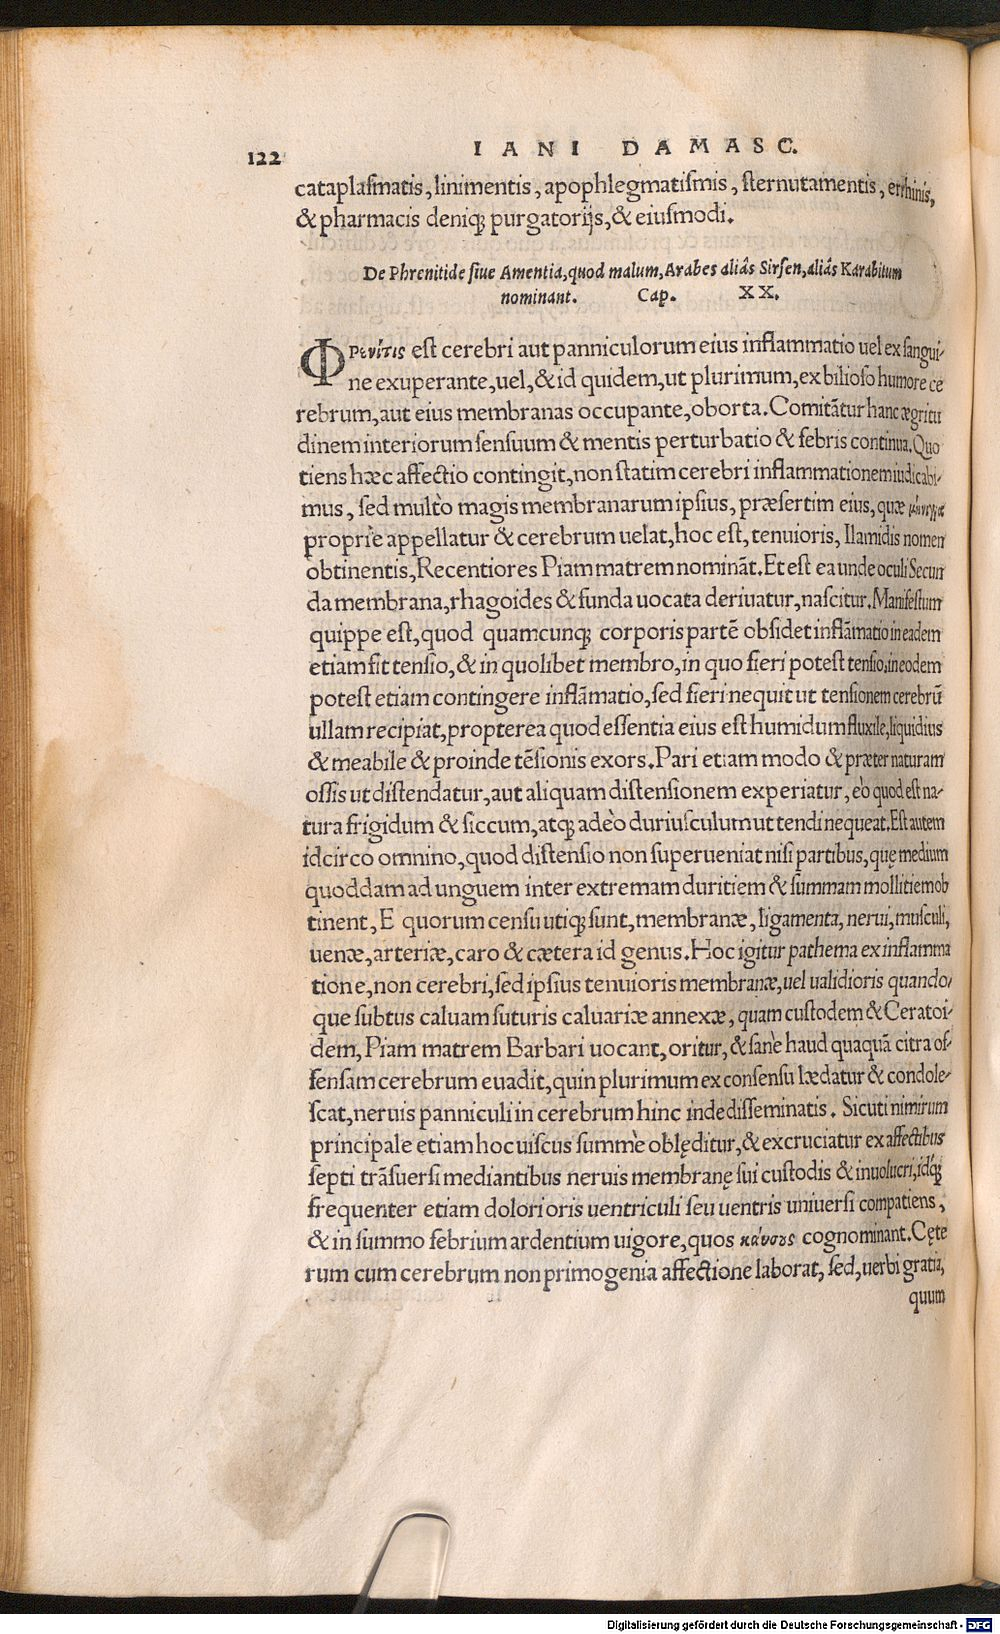 122 IANI DAMASC.
cataplasmatis, linimentis, apophlegmatismis, sternutamentis, errhinis,
& pharmacis deniq; purgatorijs, & eiusmodi.
De Phrenitide siue Amentia, quod malum, Arabes aliâs Sirsen, aliâs Karabitum
nominant. Cap. XX.
Φρενίτις est cerebri aut panniculorum eius inflammatio uel ex sangui-
ne exuperante, uel, & id quidem, ut plurimum, ex bilioso humore ce
rebrum, aut eius membranas occupante, oborta. Comitãtur hanc ægritu
dinem interiorum sensuum & mentis perturbatio & febris continua. Quo
tiens hæc affectio contingit, non statim cerebri inflammationem iudicabi-
mus, sed multò magis membranarum ipsius, præsertim eius, quæ
propriè appellatur & cerebrum uelat, hoc est, tenuioris, Ilamidis nomen
obtinentis, Recentiores Piam matrem nominãt. Et est ea unde oculi Secun
da membrana, rhagoides & funda uocata deriuatur, nascitur. Manifestum
quippe est, quod quamcunq; corporis partẽ obsidet inflãmatio in eadem
etiam fit tensio, & in quolibet membro, in quo fieri potest tensio, in eodem
potest etiam contingere inflãmatio, sed fieri nequit ut tensionem cerebrũ
ullam recipiat, propterea quod essentia eius est humidum fluxile, liquidius
& meabile & proinde tẽsionis exors. Pari etiam modo & præter naturam
ossis ut distendatur, aut aliquam distensionem experiatur, eò quod est na-
tura frigidum & siccum, atq; adeò duriusculum ut tendi nequeat. Est autem
idcirco omnino, quod distensio non superueniat nisi partibus, quę medium
quoddam ad unguem inter extremam duritiem & summam mollitiem ob
tinent, E quorum censu utiq; sunt, membranæ, ligamenta, nerui, musculi,
uenæ, arteriæ, caro & cætera id genus. Hoc igitur pathema ex inflamma
tione, non cerebri, sed ipsius tenuioris membranæ, uel ualidioris quando-
que subtus caluam suturis caluariæ annexæ, quam custodem & Ceratoi-
dem, Piam matrem Barbari uocant, oritur, & sanè haud quaquã citra of-
fensam cerebrum euadit, quin plurimum ex consensu lædatur & condole-
scat, neruis panniculi in cerebrum hinc inde disseminatis. Sicuti nimirum
principale etiam hoc uiscus summè oblęditur, & excruciatur ex affectibus
septi trãsuersi mediantibus neruis membranę sui custodis & inuolucri, idq́;
frequenter etiam dolori oris uentriculi seu uentris uniuersi compatiens,
& in summo febrium ardentium uigore, quos καύσους cognominant. Cęte
rum cum cerebrum non primogenia affectione laborat, sed, uerbi gratia,
quum
Digitalisierung gefördert durch die Deutsche Forschungsgemeinschaft - DFG